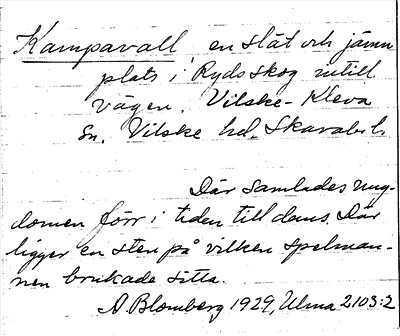 Kampavall en slät och jämn
plats i Ryds skog intill
vägen. Vilske-Kleva
Sn. Vilske hd. Skarab. l.
Där samlades ung-
domen förr i tiden till dans. Där
ligger en sten på vilken spelman-
nen brukade sitta.
A. Blomberg 1929, Ulma 2103:2